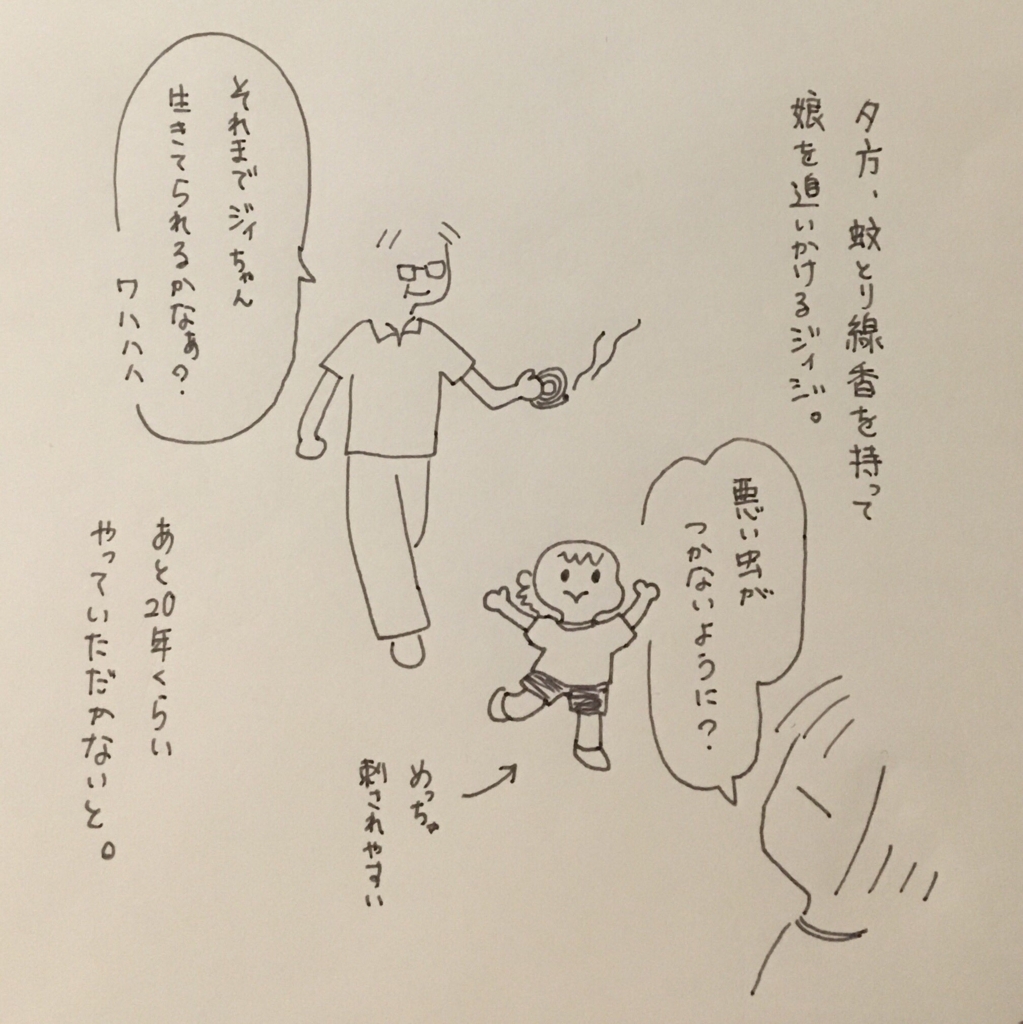 夕方、蚊とり線香を持って
娘を追いかけるジィジ。
悪い虫が
つかないように?
それまでジィちゃん
生きてられるかなぁ?
ワハハハ
めっちゃ
刺されやすい
あと20年くらい
やっていただかないと。